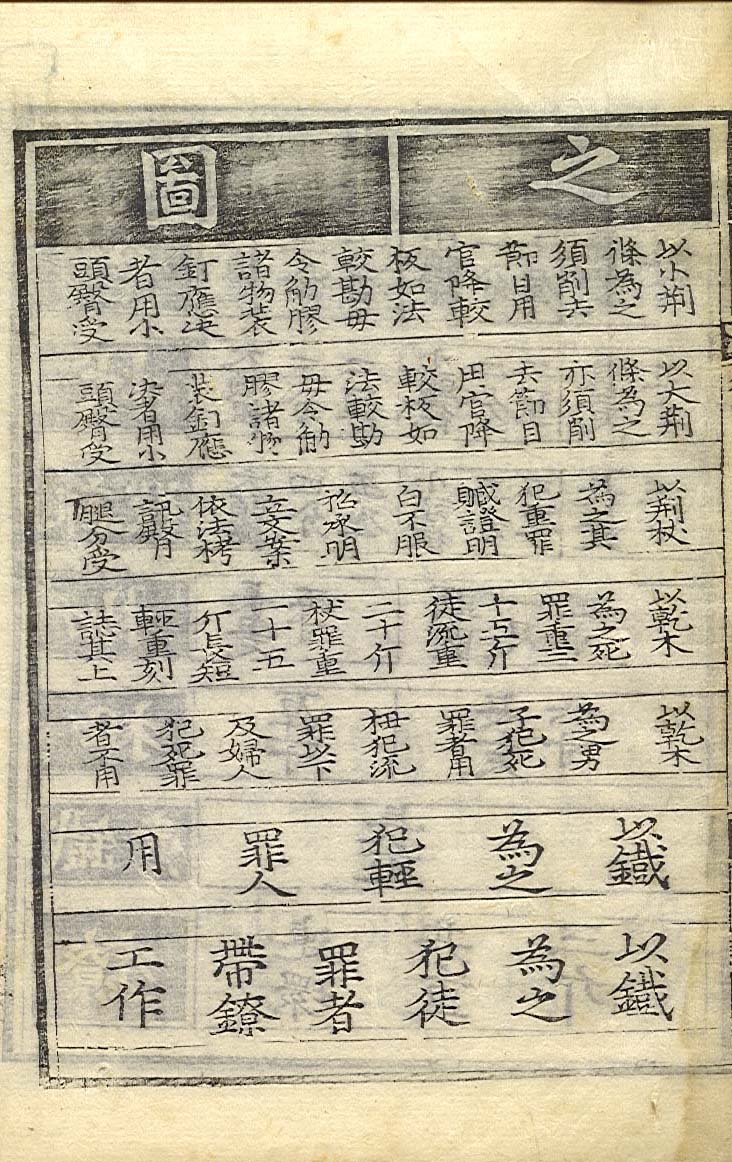 之
圖
以小荊
條為之
須削去
節目用
官降較
板如法
較勘毋
令觔膠
諸物裝
釘應决
者用小
頭臀受
以大荊
條為之
亦須削
去節目
用官降
較板如
法較勘
毋令觔
膠諸物
裝釘應
决者用小
頭臀受
以荊杖
為之其
犯重罪
贓證明
白不服
招承明
立文案
依法栲
訊臀
腿分受
以乾木
為之死
罪重二
十五斤
徒流重
二十斤
杖罪重
一十五
斤長短
輕重刻
誌其上
以乾木
為之男
子犯死
罪者用
杻犯流
罪以下
及婦人
犯死罪
者不用
以鐵
為之
犯輕
罪人
用
以鐵
為之
犯徒
罪者
帶鐐
工作